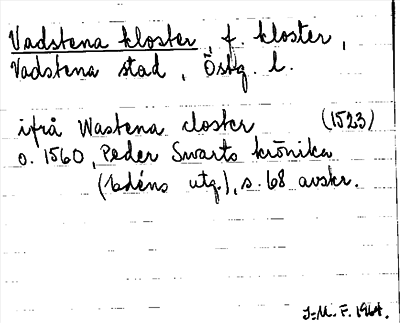 Vadstena kloster, f kloster,
Vadstena stad, Östg. l.
ifrå Wastena closter (1523)
o. 1560, Peder Swarts krönika
(Edéns utg.), s. 68 avskr.
J-M. F. 1964.